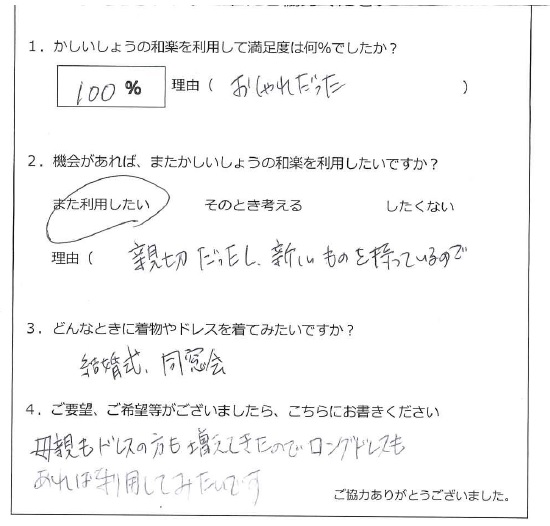 1．かしいしょうの和楽を利用して満足度は何%でしたか？
100 % 理由（ おしゃれだった ）
2．機会があれば、またかしいしょうの和楽を利用したいですか？
また利用したい そのとき考える したくない
理由（ 親切だったし、新しいものを持っているので
3．どんなときに着物やドレスを着てみたいですか？
結婚式、同窓会
4．ご要望、ご希望等がございましたら、こちらにお書きください
母親もドレスの方も増えてきたのでロングドレスも
あれば利用してみたいです
ご協力ありがとうございました。